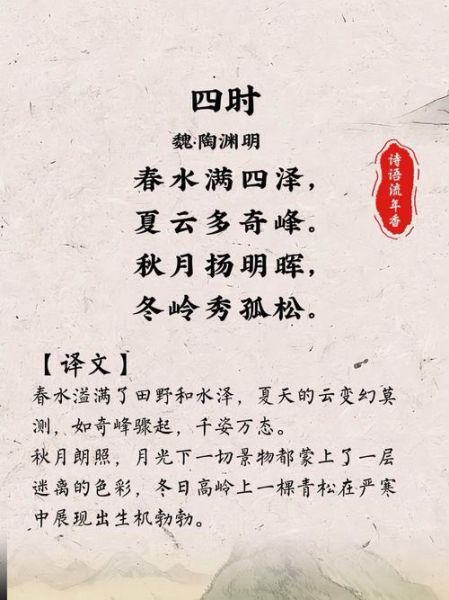 四时
魏·陶渊明
春水满四泽，
夏云多奇峰。
秋月扬明晖，
冬岭秀孤松。
诗语流年香
【译文】
春水溢满了田野和水泽，夏天的云变幻莫
测，如奇峰骤起，千姿万态。
秋月朗照，月光下一切景物都蒙上了一层
迷离的色彩，冬日高岭上一棵青松在严寒
中展现出生机勃勃。